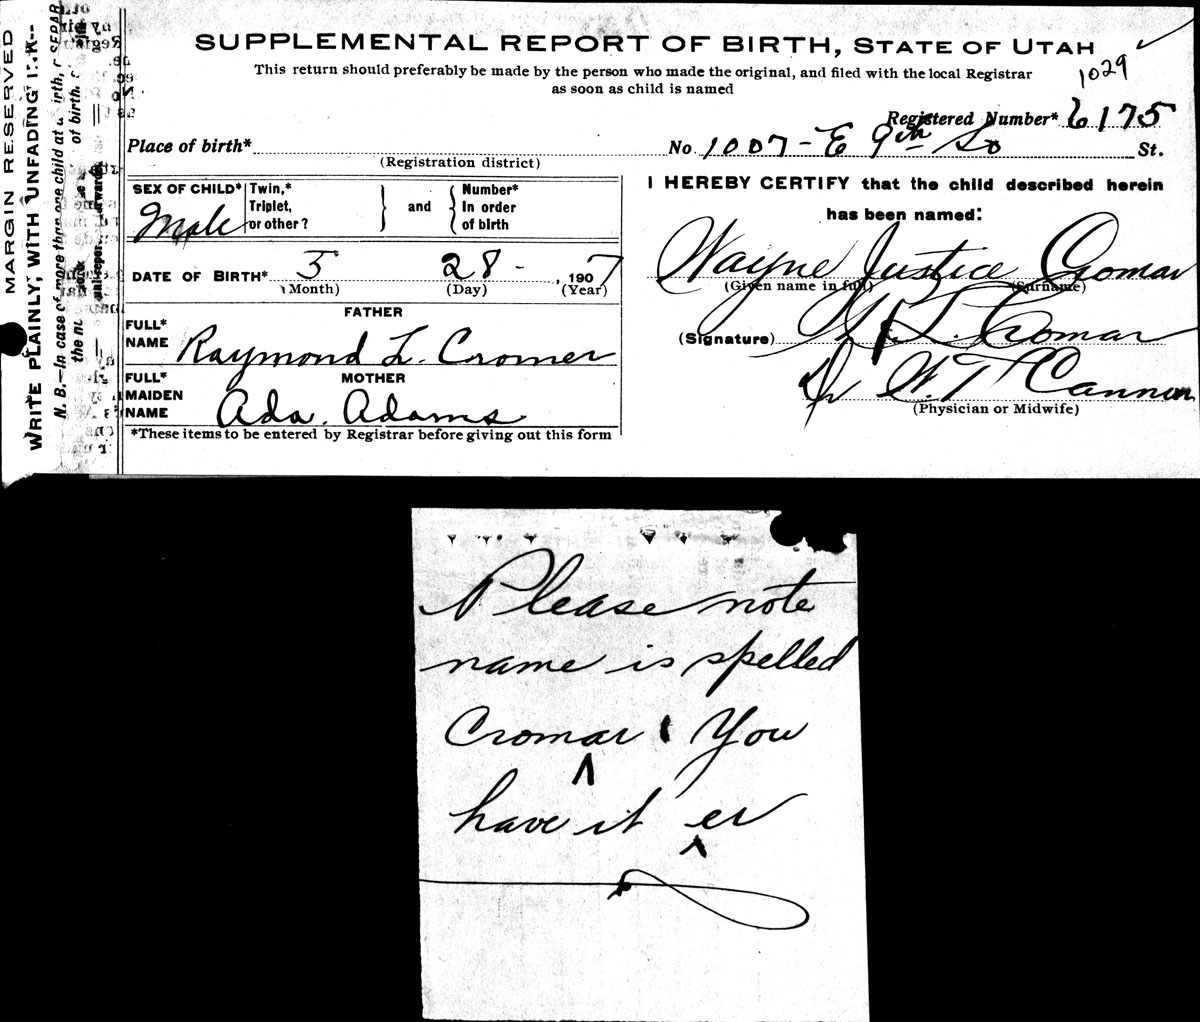 SUPPLEMENTAL REPORT OF BIRTH, STATE OF UTAH
This return should preferably be made by the person who made the original, and filed with the local Registrar
as soon as child is named
1029
Registered Number* 6175
Place of birth* No. 1007-E 9th So St.
(Registration district)
SEX OF CHILD* Male
Twin,* Triplet, or other? } and { Number* In order of birth
DATE OF BIRTH* 5 28 - , 1907
(Month) (Day) (Year)
FATHER
FULL* NAME Raymond L. Cromer
MOTHER
FULL* MAIDEN NAME Ada. Adams
*These items to be entered by Registrar before giving out this form
I HEREBY CERTIFY that the child described herein
has been named:
Wayne Justice Cromar
(Given name in full) (Surname)
(Signature) R. L. Cromar
Dr W. T. Cannon
(Physician or Midwife)
MARGIN RESERVED
WRITE PLAINLY, WITH UNFADING INK--
N. B.—In case of more than one child at a birth, a SEPAR
of birth.
Please note
name is spelled
Cromar You
have it er